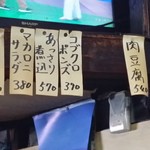 肉豆腐
コブクロ
ポンズ
390
あっさり
煮込
590
マカロニ
サラダ
380